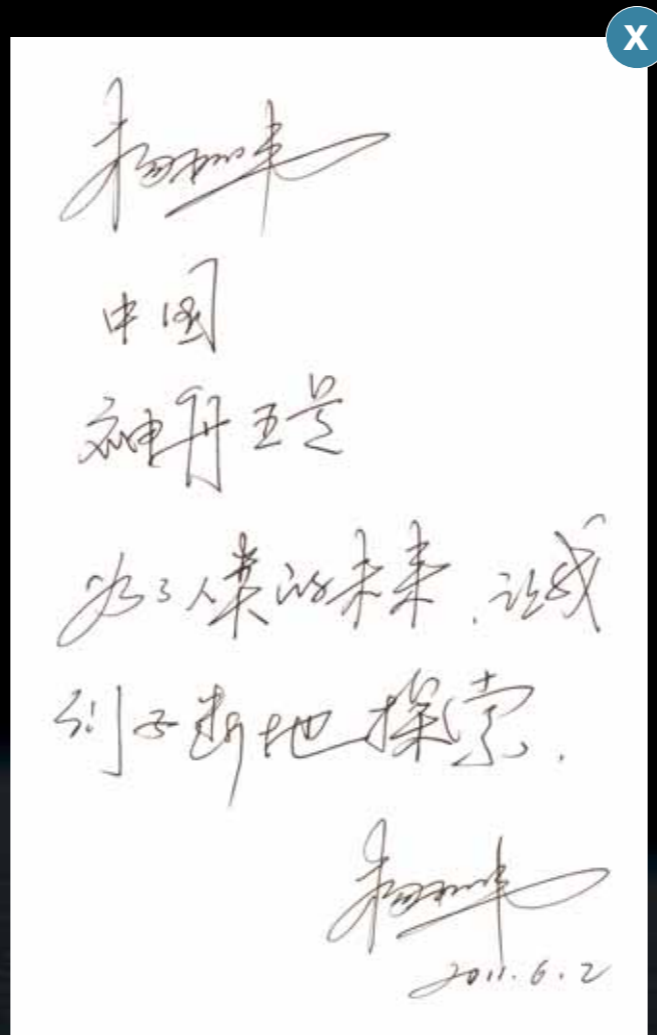 X
杨利伟
中国
神舟五号
为了人类的未来，让我
们不断地探索.
杨利伟
2011.6.2